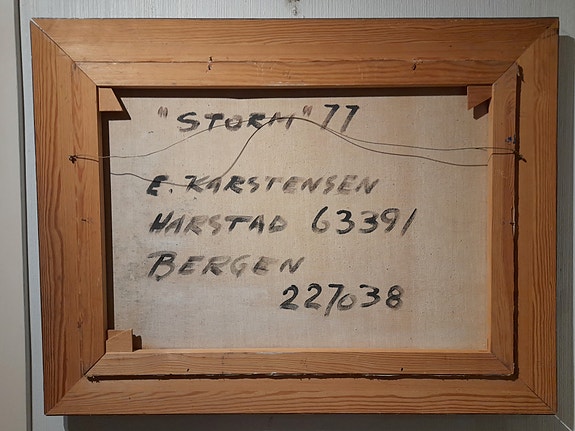 "STORM" 77
E. KARSTENSEN
HARSTAD 63391
BERGEN
227038